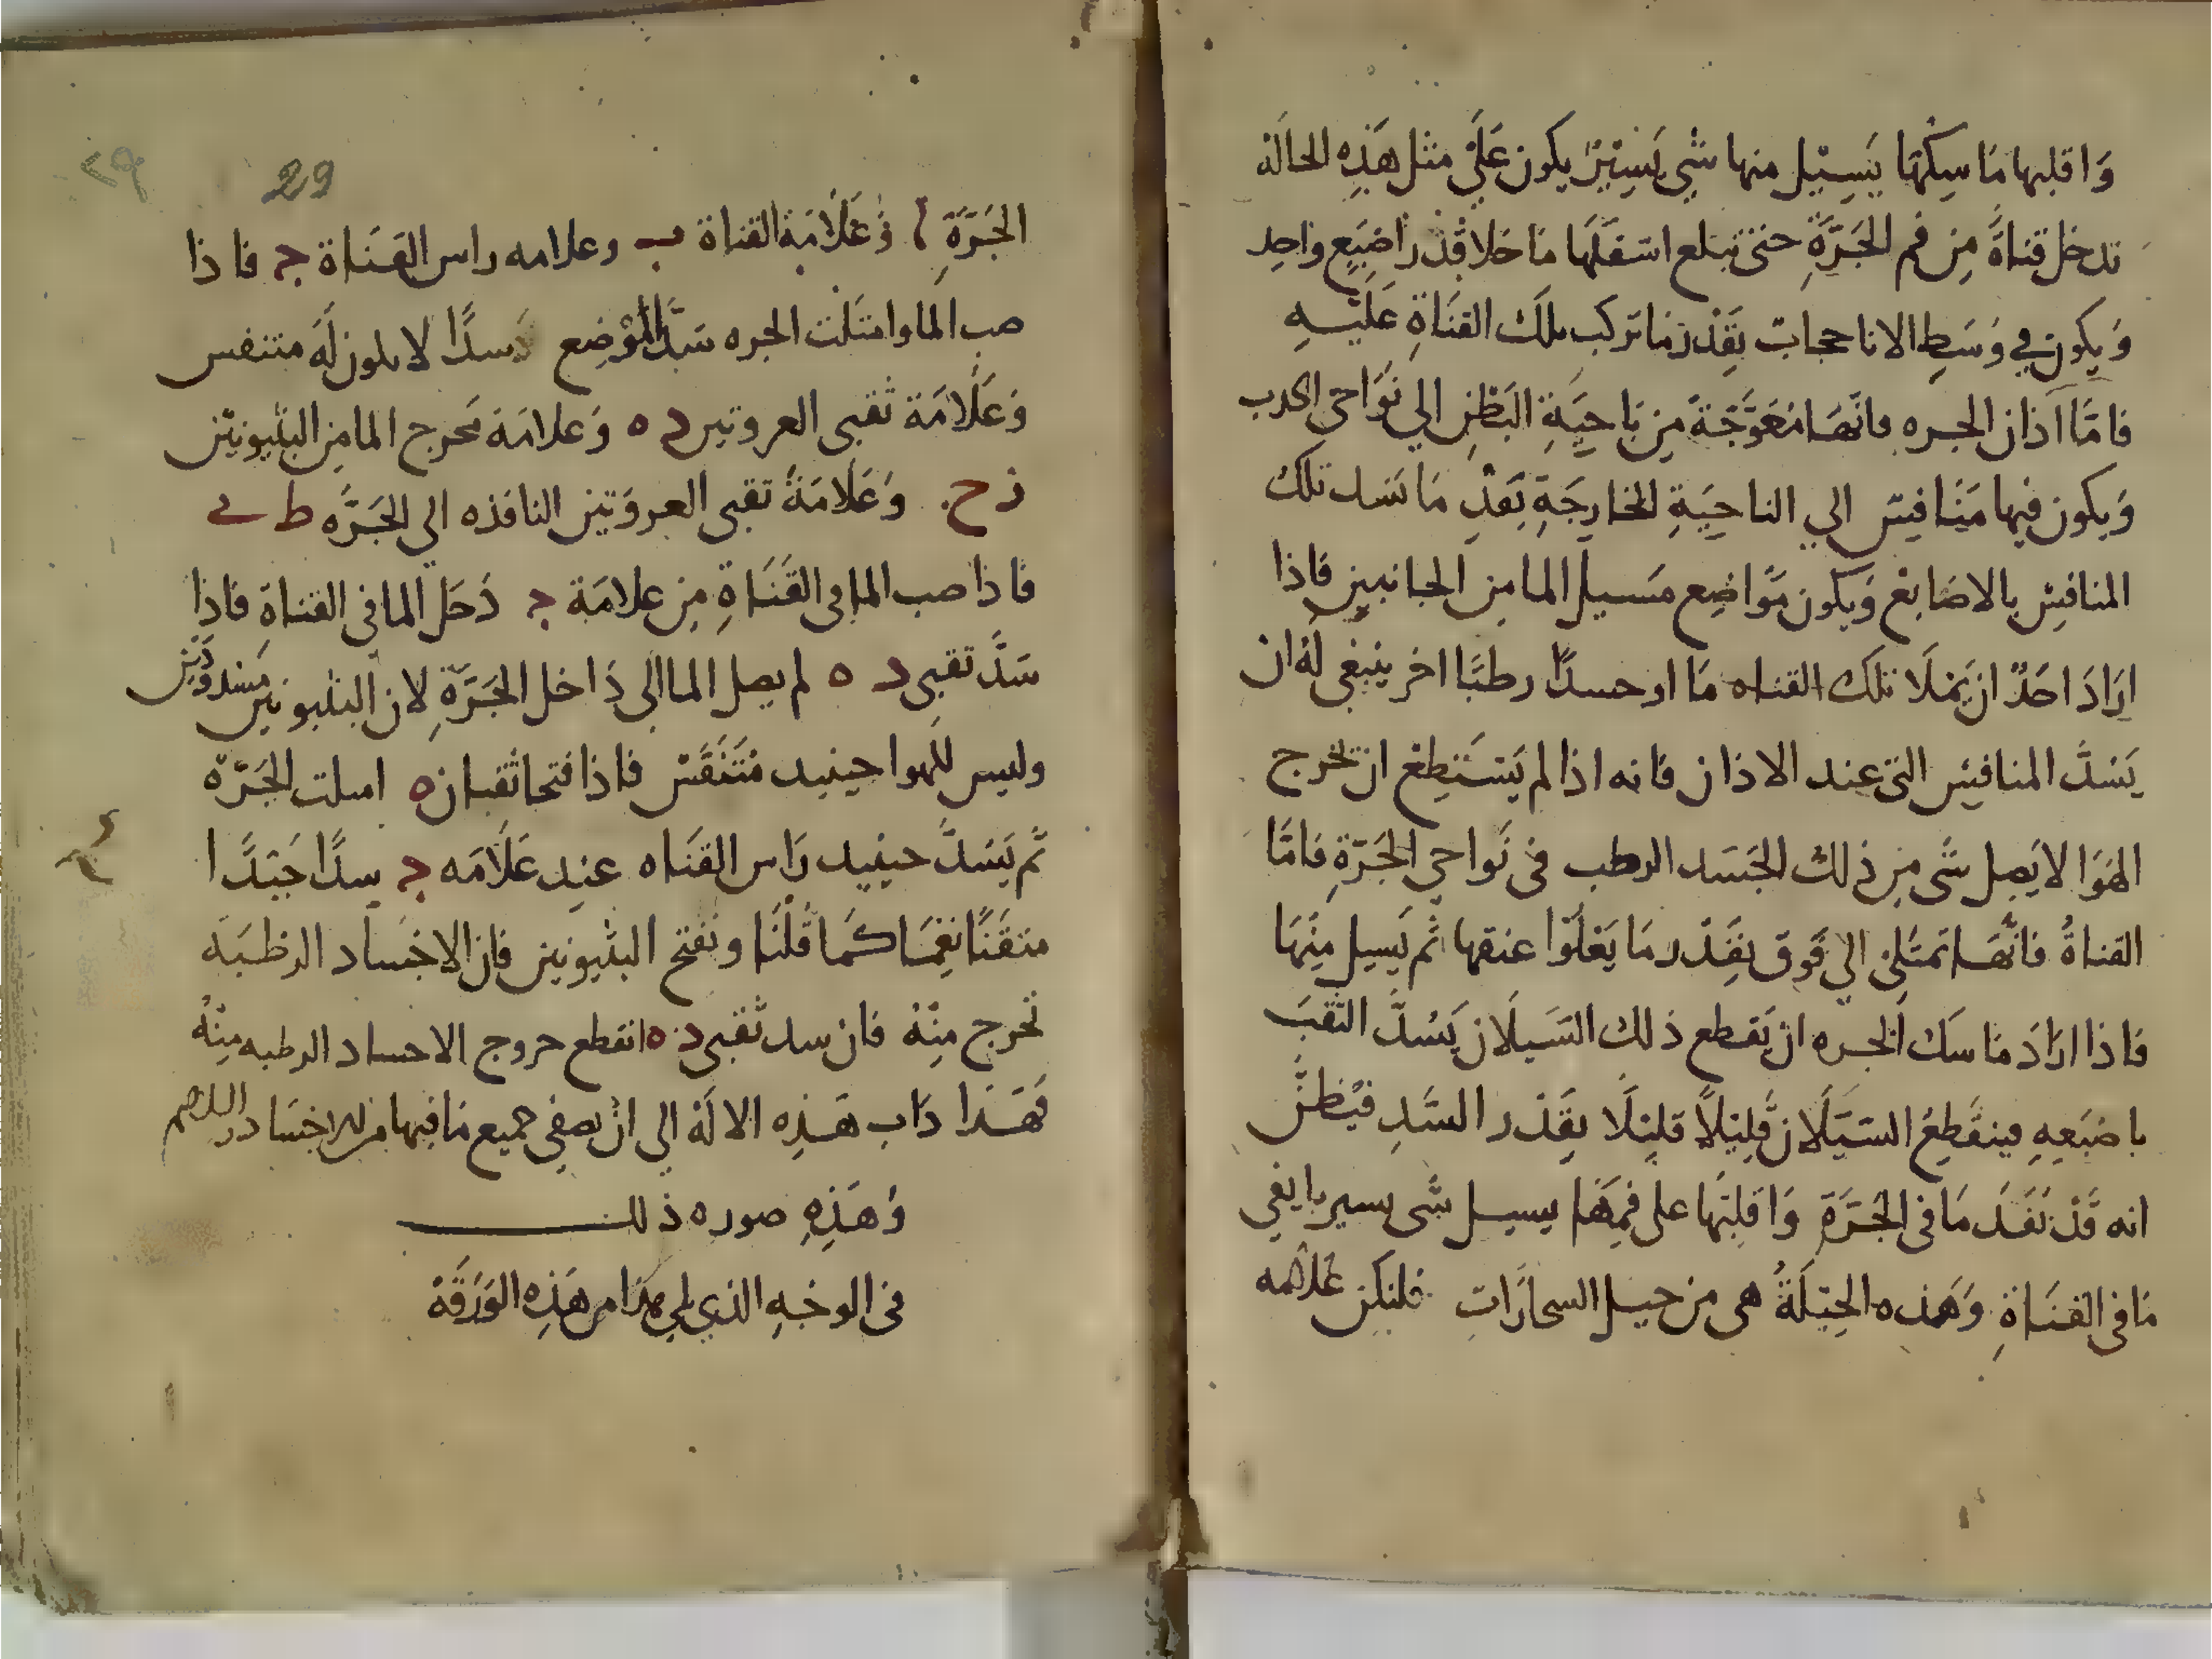 وَاقلبها مَاسِكهَا يَسِيْل منها شي يَسِيْرٌ يكون عَلَي مثل هَذِه الحَالَه
تدخل قناةً مِن فم الجَرَّةِ حتى تبلع اسَفَلَهَا مَا خلا قَدْر اصْبَعٍ واحِد
وَيكون في وَسَطِ الانا حجابٌ بِقَدْر مَا تركب تلك القَنَاةِ عَلَيْهِ
فامَّا آذان الجره فانَّهَا مُعَوَّجَةً مِن نَاحِيَةِ البَطْنِ الي نَوَاحي الحدب
وَيكون فيها مَنَافِسٌ الي الناحِيَةِ الخارِجَةِ بَقَدْرِ مَا تسَد تلك
المنافِسْ بالاصَابعْ وَيكون مَوَاضِع مَسيل الما من الجانبين فاذا
ارَادَ احَدٌ ان يَملَا تلَك القناه مَا او جسدًا رطبًا اخر ينبغي لَهُ ان
يَسُدَّ المنافِسْ التى عند الاذان فانه اذا لم يَسْتَطِعْ ان تخرج
الهَوَا لا يَصِل شَى مِن ذلك الجَسَد الرطب فى نَواحي الجَرّةِ فامَّا
القناةُ فانَّهَا تمتَلىْ الي فَوق بقَدْر مَا يَعْلَوْا عنقها ثم يَسِيل مِنْهَا
فاذا ارَادَ مَاسَك الجره ان يَقطع ذلك السَيلان يَسُدَّ الثقبَ
باصْبَعِهِ فينقَطِعُ السَيَلَان قَلِيْلاً قلِيْلًا بِقَدْر السَّدِ فيُظَنُّ
انه قَدْ نَفَدَ مَا فى الجَرَّةِ وَاقلبَهَا على فَمِهَا يسيل شَى يسير بابقي
مَا فى القنَاةِ وَهَذه الحِيْلَةُ هى من حيل السحَارَاتِ فلتكن عَلامه
29
الجَرَّةِ ا وَعَلَامَة القناة ب وعلامه راس القَنَاة ج فاذا
صب الما وامتلت الجره سَدَّ المَوْضِع سدًا لا يكون لَهُ متنفس
وَعَلَامَة ثقبى العروتين د ه وَعلامَة مَخرج الما من البثيونين
ز ح وَعَلامَةَ ثقبى العروَتين النافذه الي الجَرَّه ط ى
فاذا صب الما فى القَنَاةِ مِن علامَة ج دَخَل الما فى القناةِ فاذا
سَدَّ ثقبى د ه لم يصل الما الى دَاخل الجَرّةِ لان البثيونين مَسْدودَين
وليس للهوا حينيد مُتَنَفَّس فاذا فتحا ثقبان ه امتلت الجَرّة
ثم يَسُدَّ حينيد رَاس القنَاه عنِد عَلَامَه ج سدًا جَيّدًا
متقَنًا نِعِمَا كَمَا قُلْنَا وتفتح البثيونين فان الاجْسَاد الرطبَه
تخرج مِنْهُ فان سد ثقبى د ه انقطع خروج الاجساد الرطبه مِنْهُ
فَهَذا دَاب هَذِه الالَة الي ان يصفي جميع مَا فيها من الاجسَاد
وَهَذِهِ صوره ذلك
فى الوجْهِ الذي يلي هذا من هَذِه الوَرَقَة